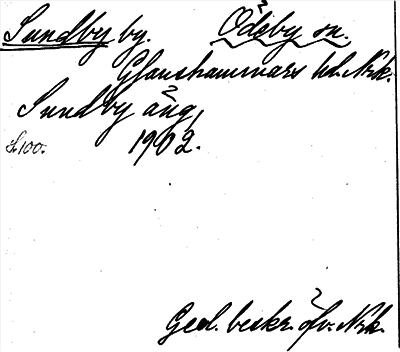 Sundby by. Ödeby sn.
Glanshammars hd. Nrk.
Sundby äng
1902.
S. 100.
Geol. beskr. öfv. Nrk.